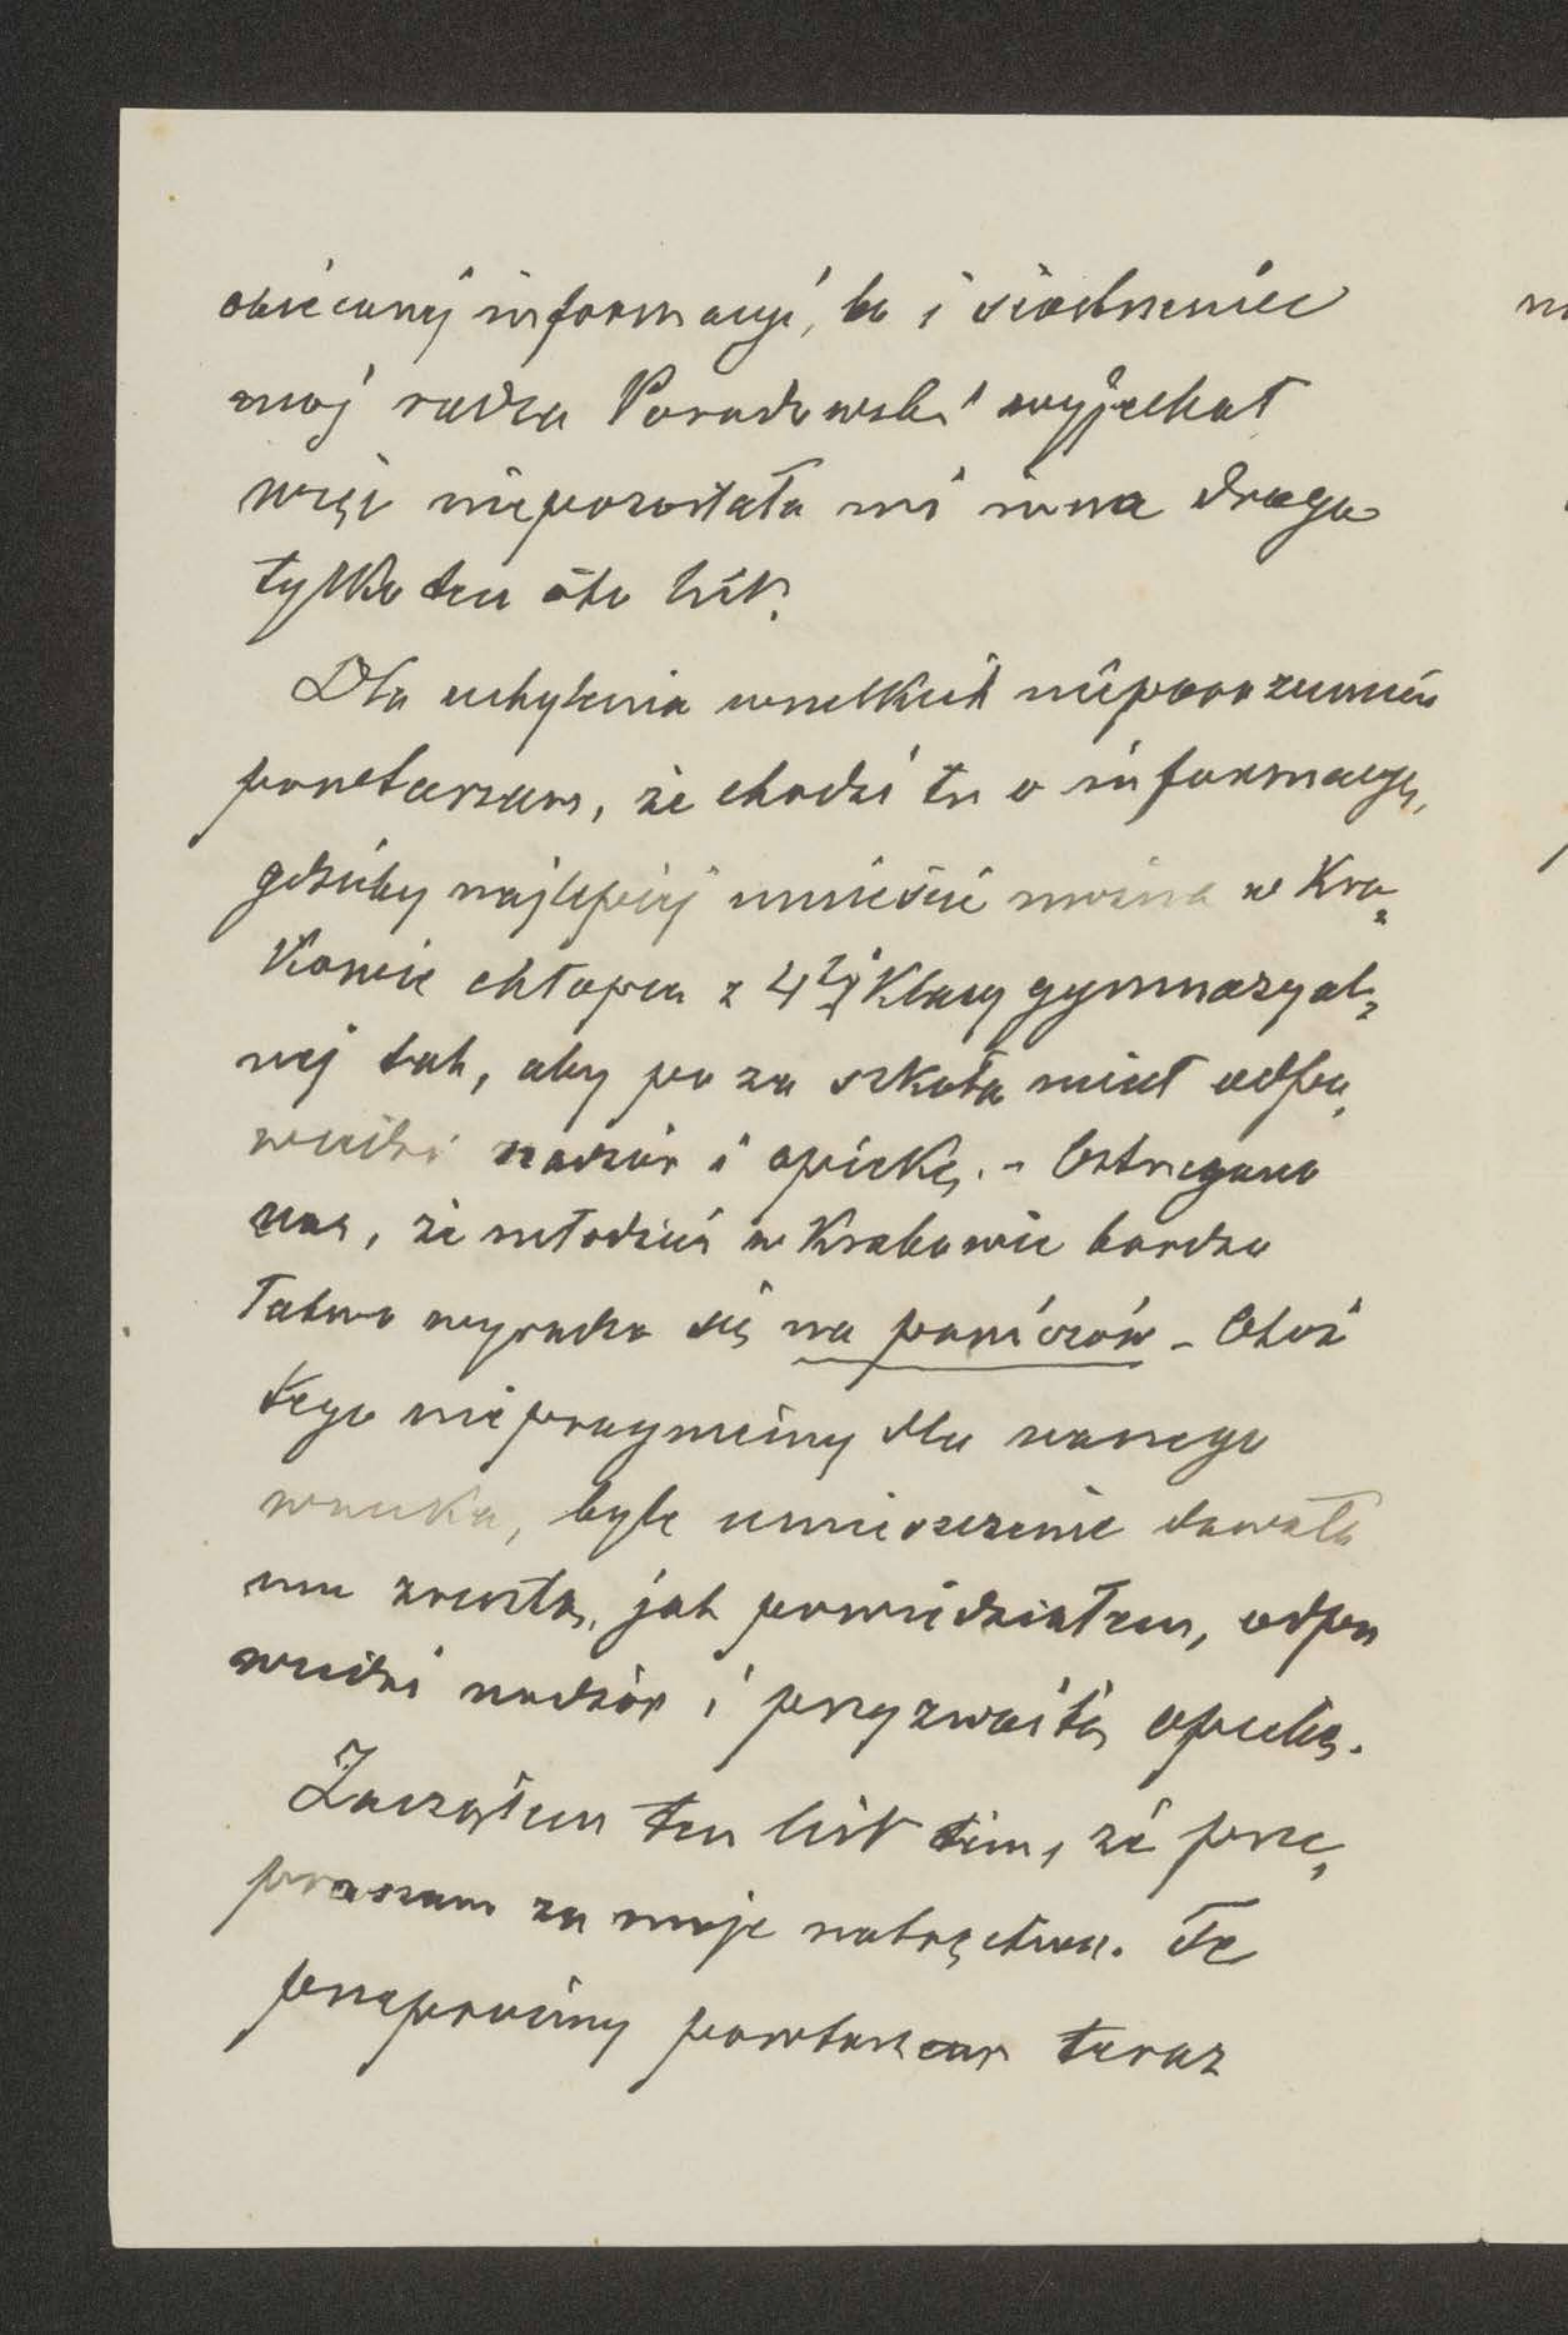 obiecanéj informacyi, bo i siostrzeniec
mój radca Poradowski wyjechał
więc niepozostała mi inna droga
tylko ten oto list.
Dla uchylenia wszelkich nieporozumień
powtarzam, że chodzi tu o informacyę,
gdzieby najlepiej umieścić można w Kra„
kowie chłopca z 4tej klasy gymnazyal„
nej tak, aby po za szkołą miał odpo„
wiedni nadzór i opiekę. – Ostrzegano
nas, że młodzież w Krakowie bardzo
łatwo wyradza się na paniczów – Otóż
tego niepragniemy dla naszego
wnuka, byle umieszczenie dawało
mu zresztą, jak powiedziałem, odpo
wiedni nadzór i przyzwoitą opiekę.
Zacząłem ten list tem, że prze„
praszam za moje natręctwo. Te
przeprosiny powtarzam teraz
ni